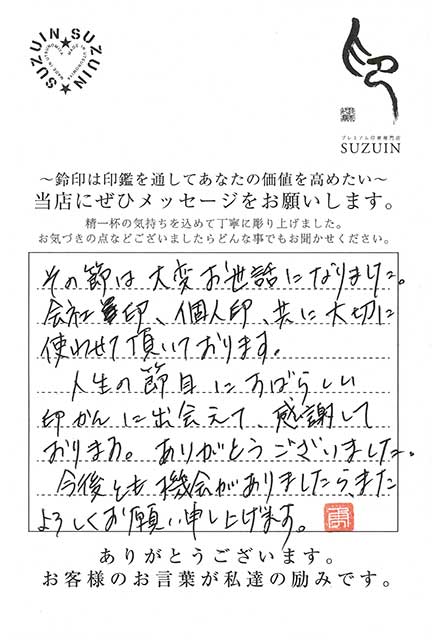 SUZUIN★SUZUIN★
印
プレミアム印章専門店
SUZUIN
～鈴印は印鑑を通してあなたの価値を高めたい～
当店にぜひメッセージをお願いします。
精一杯の気持ちを込めて丁寧に彫り上げました。
お気づきの点などございましたらどんな事でもお聞かせください。
その節は大変お世話になりました。
会社印、個人印、共に大切に
使わせて頂いております。
人生の節目にすばらしい
印かんに出会えて、感謝して
おります。ありがとうございました。
今後とも機会がありましたら、また
よろしくお願い申し上げます。
ありがとうございます。
お客様のお言葉が私達の励みです。